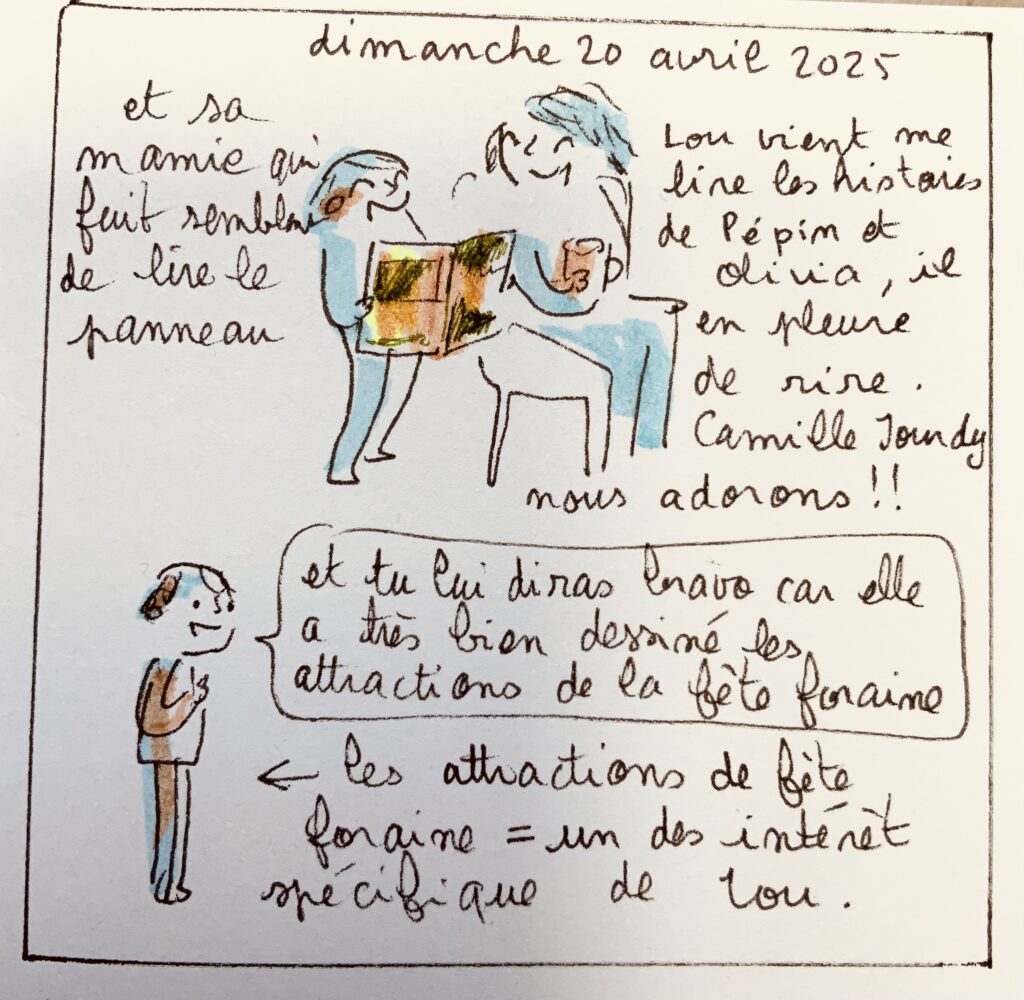 dimanche 20 avril 2025
et sa
mamie qui
fait semblant
de lire le
panneau
Lou vient me
lire les histoires
de Pépin et
Olivia, il
en pleure
de rire.
Camille Jourdy
nous adorons!!
et tu lui diras bravo car elle
a très bien dessiné les
attractions de la fête foraine
← les attractions de fête
foraine = un des intérêt
spécifique de Lou.